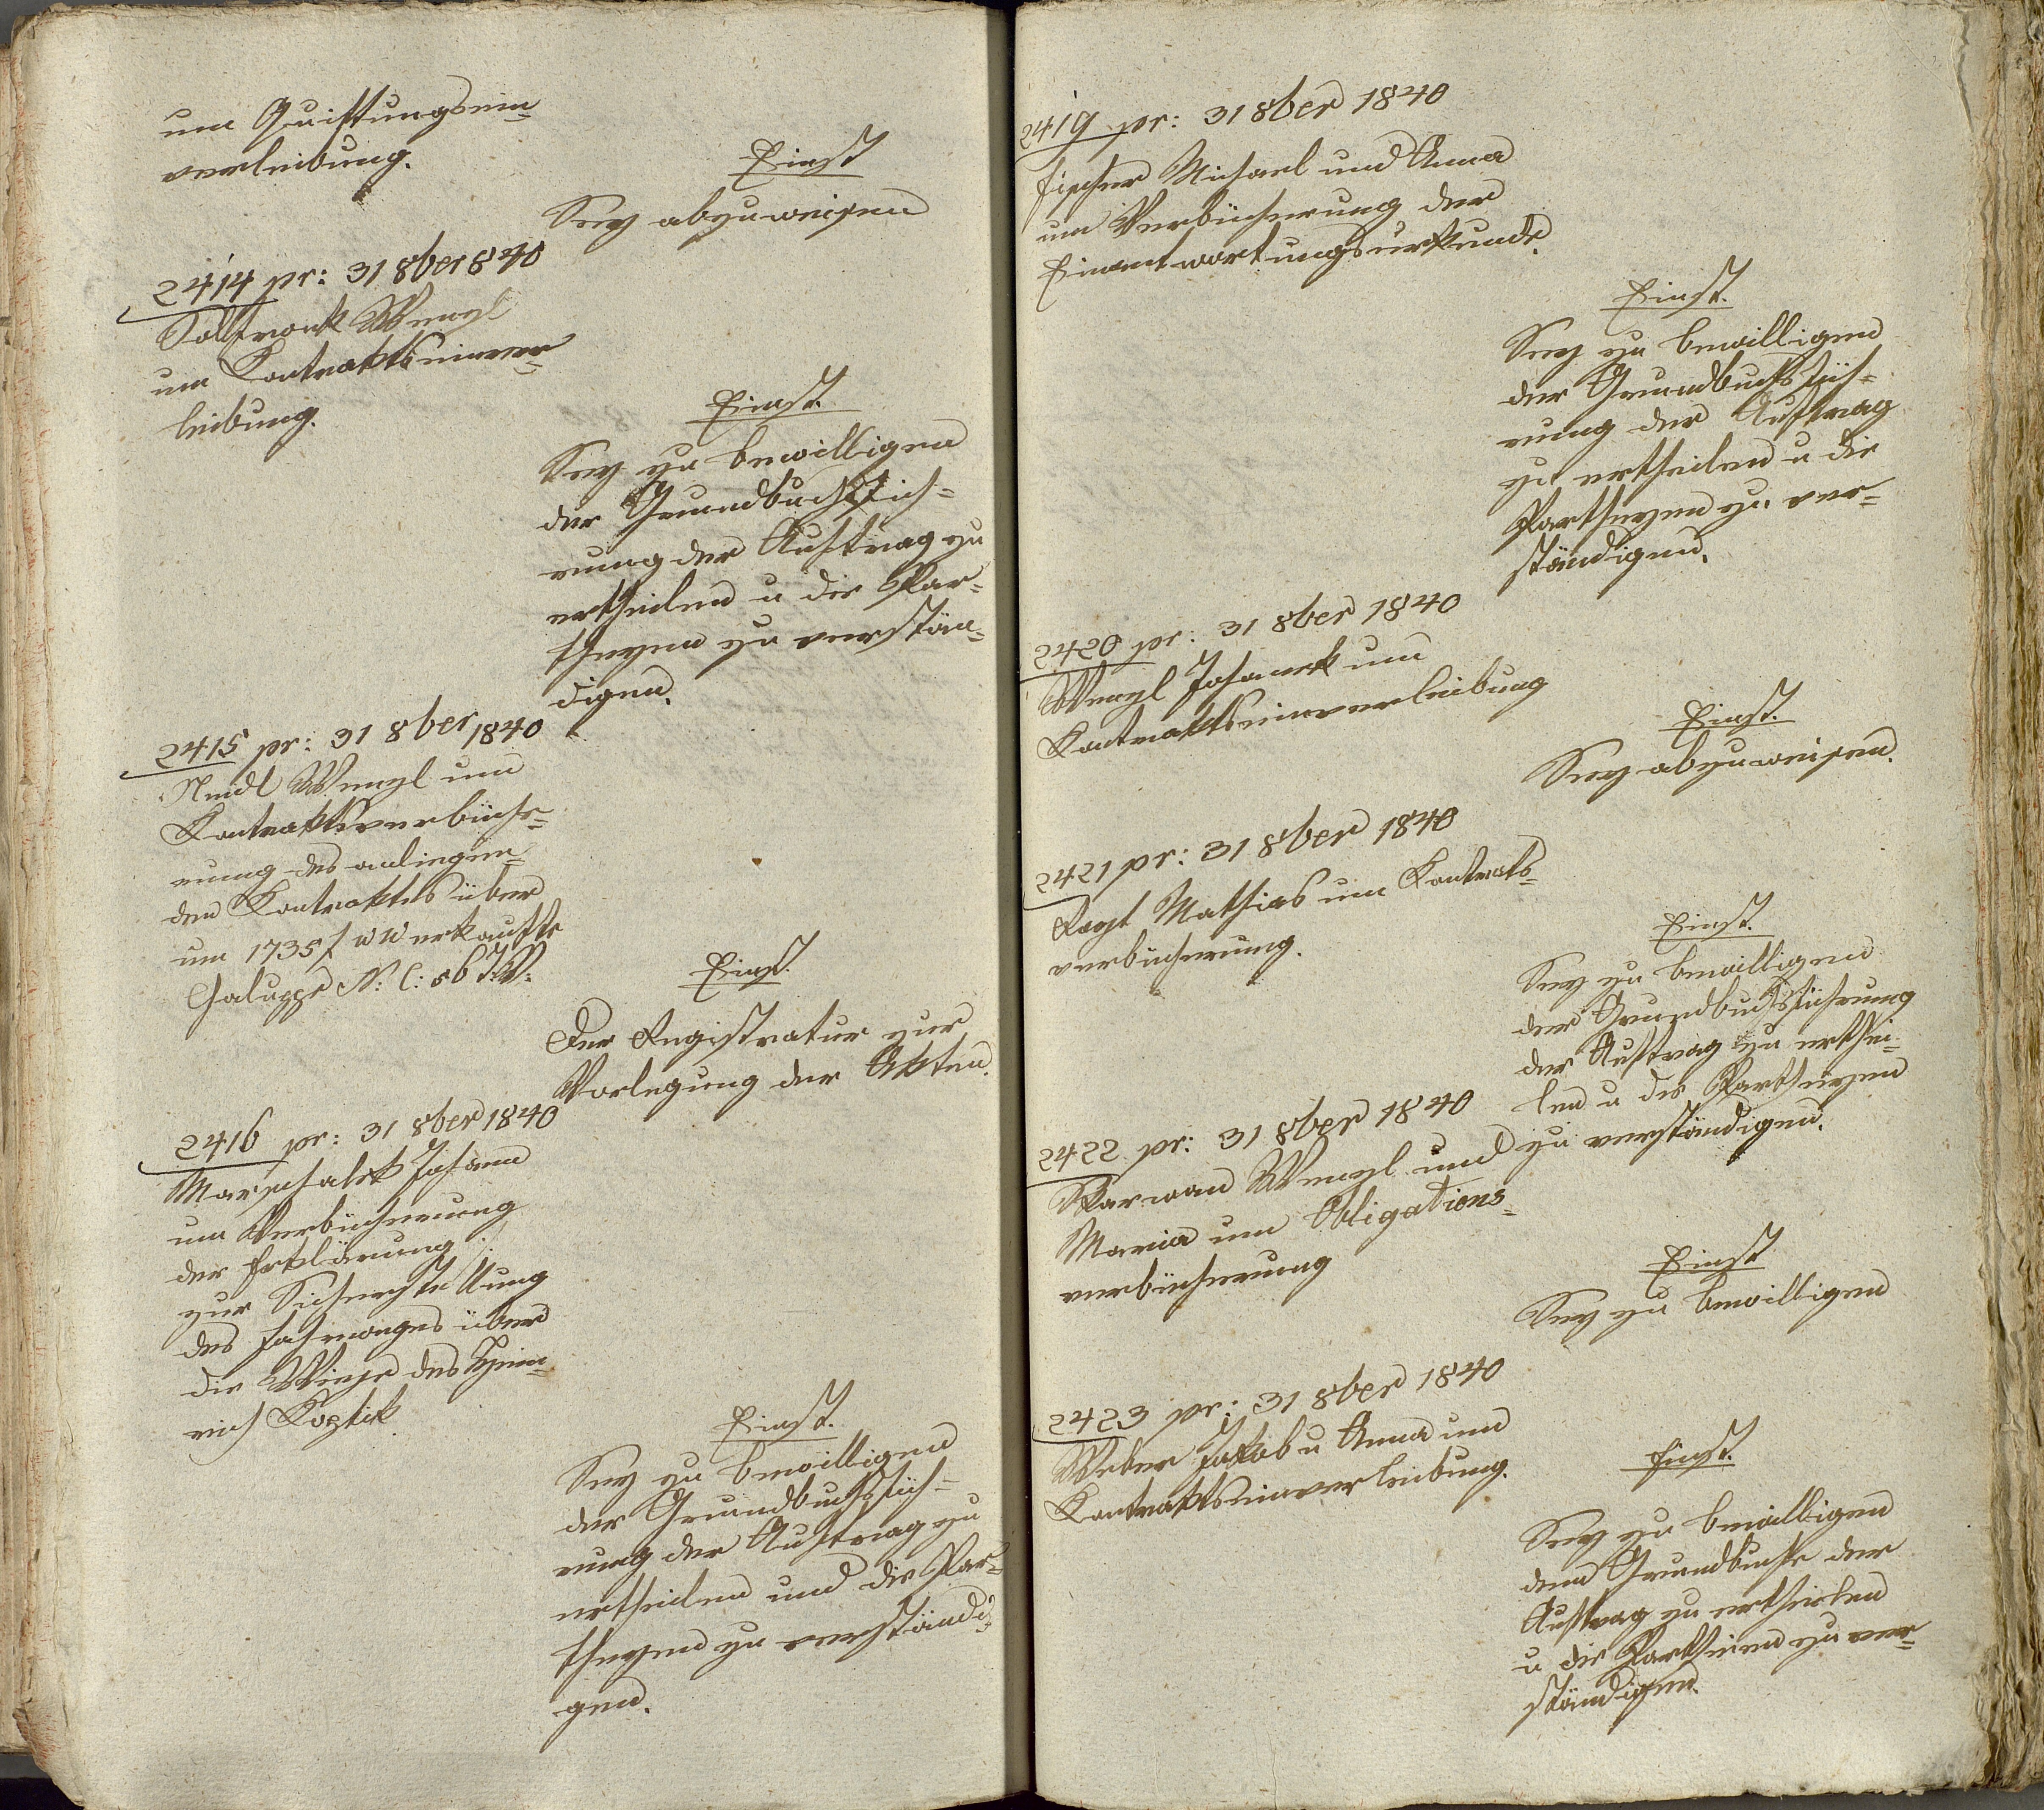 um Quittungsein-
verleibung.
Einst
Sey abzuweisen
2414 pr: 31 8ber 840
Wenzl
um Kontraktseinver-
leibung.
Einst.
Sey zu bewilligen
der Grundbuchsfüh-
rung der Auftrag zu
ertheilen u die Par-
theyen zu verstän-
digen.
2415 pr: 31 8ber 1840
Wenzl um
Kontraktsverbüche-
rung des anliegen-
den Kontraktes über
um 1735 f WW erkaufte
Chaluppe N: C: 56
Einst.
Der Registratur zur
Vorlegung der Akten.
2416 pr: 31 8ber 1840
Marschalek Johann
um Verbücherung
der Erklärung
zur Sicherstellung
des Fahrweges über
die Wiese des Hein-
rich Koztik
Einst.
Sey zu bewilligen
der Grundbuchsfüh-
rung der Auftrag zu
ertheilen und die Par-
theyen zu verständi-
gen.
2419 pr: 31 8ber 1840
Fischer Michael und Anna
um Verbücherung der
Einantwortungsurkunde.
Einst.
Sey zu bewilligen
der Grundbuchsfüh-
rung der Auftrag
zu ertheilen u die
Partheyen zu ver-
ständigen.
2420 pr: 31 8ber 1840
Wenzl Johanek um
Kontraktseinverleibung
Einst.
Sey abzuweisen.
2421 pr: 31 8ber 1840
Mathias um Kontrats-
verbücherung.
Einst.
Sey zu bewilligen
der Grundbuchsführung
der Auftrag zu erthei-
len u die Partheyen
zu verständigen.
2422 pr: 31 8ber 1840
Karwan Wenzl und
Maria um Obligations-
verbücherung
Einst
Sey zu bewilligen
2423 pr: 31 8ber 1840
Weber Jakob u Anna um
Kontraktseinverleibung.
Einst.
Sey zu bewilligen
dem Grundbuche der
Auftrag zu ertheilen
u die Partheien zu ver-
ständigen.